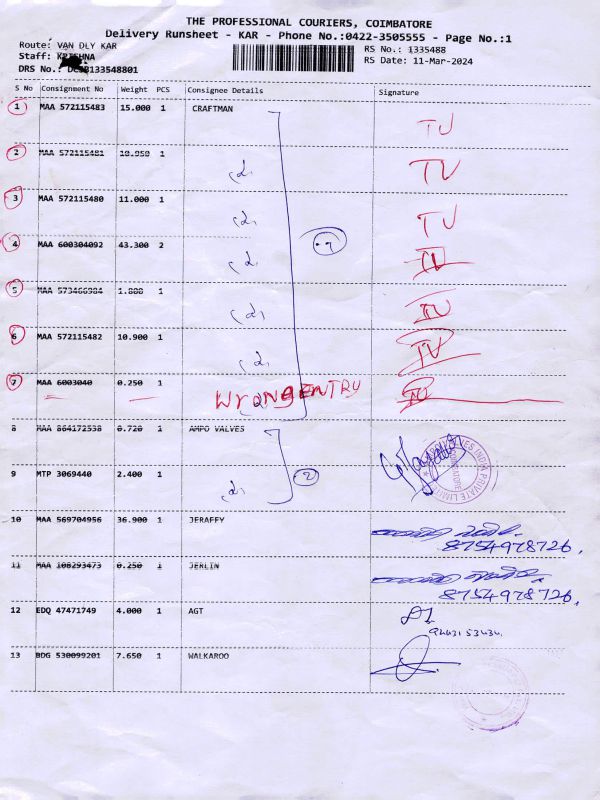 THE PROFESSIONAL COURIERS, COIMBATORE
Delivery Runsheet - KAR - Phone No.:0422-3505555 - Page No.:1
Route: VAN DLY KAR RS No.: 1335488
Staff: KRISHNA RS Date: 11-Mar-2024
DRS No.:
S No Consignment No Weight PCS Consignee Details Signature
1 MAA 572115483 15.000 1 CRAFTMAN
2 MAA 572115481 10.950 1
3 MAA 572115480 11.000 1
4 MAA 600304092 43.300 2
5 MAA 573466984 1.800 1
6 MAA 572115482 10.900 1
7 MAA 6003040 0.250 1 WrONG ENTRY
8 MAA 864172538 0.720 1 AMPO VALVES
9 MTP 3069440 2.400 1 2
10 MAA 569704956 36.900 1 JERAFFY
8754978726
11 MAA 108293473 0.250 1 JERLIN
8754978726
12 EDQ 47471749 4.000 1 AGT
13 BDG 530099201 7.650 1 WALKAROO